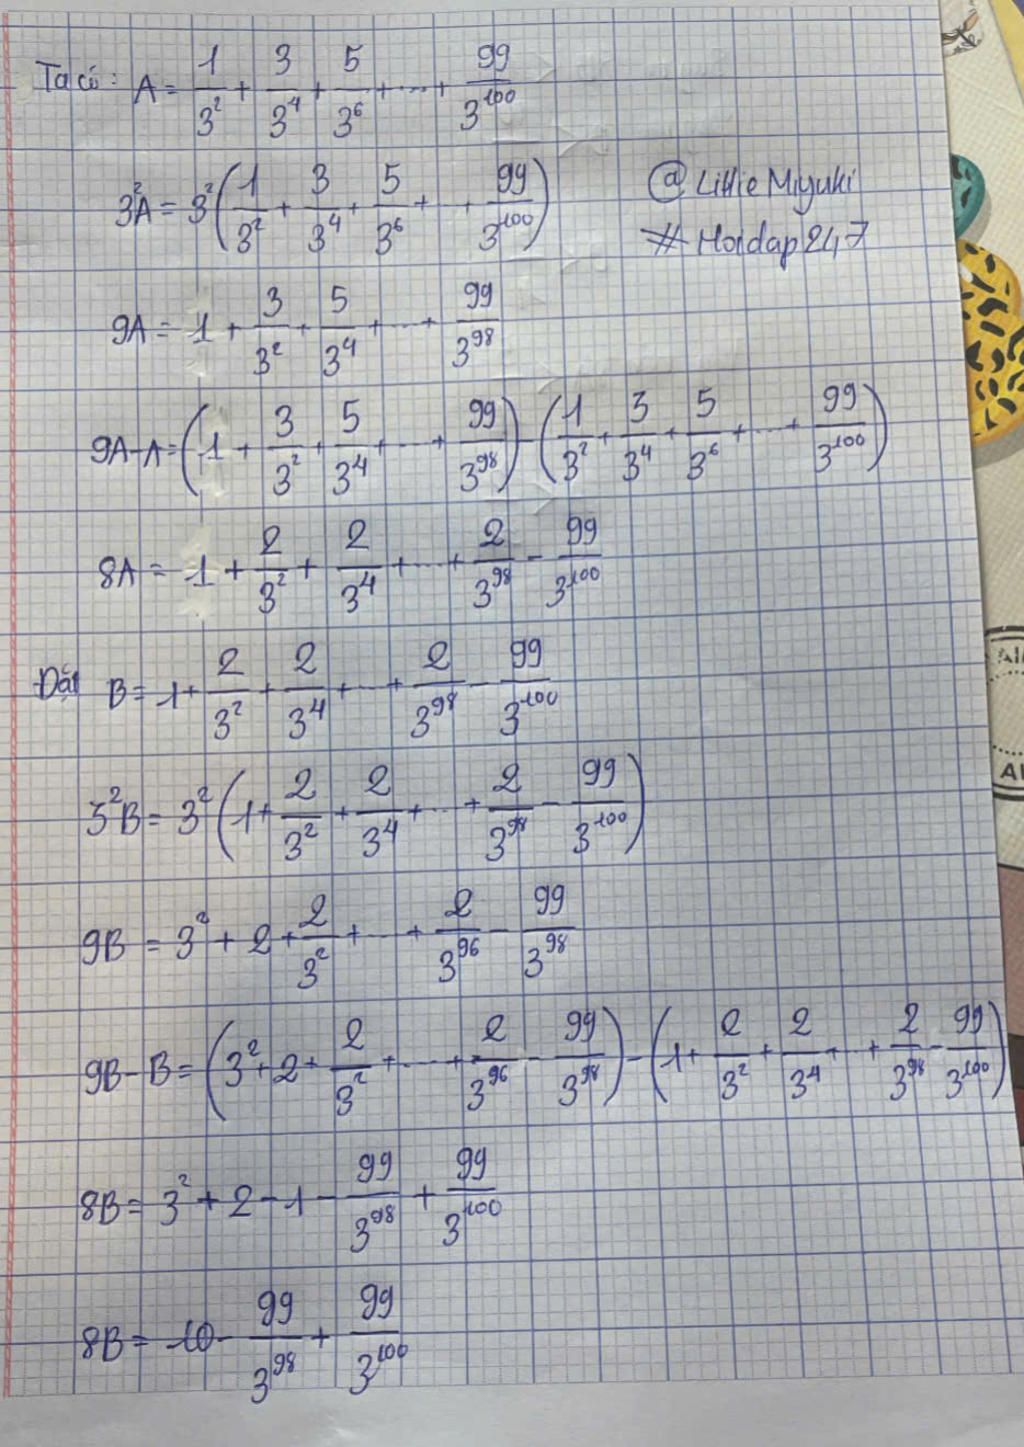 Ta có: A = 1/3² + 3/3⁴ + 5/3⁶ + ... + 99/3¹⁰⁰
3²A = 3²(1/3² + 3/3⁴ + 5/3⁶ + ... + 99/3¹⁰⁰) @Little Miyuki
# Hoidap247
9A = 1 + 3/3² + 5/3⁴ + ... + 99/3⁹⁸
9A - A = (1 + 3/3² + 5/3⁴ + ... + 99/3⁹⁸) - (1/3² + 3/3⁴ + 5/3⁶ + ... + 99/3¹⁰⁰)
8A = 1 + 2/3² + 2/3⁴ + ... + 2/3⁹⁸ - 99/3¹⁰⁰
Đặt B = 1 + 2/3² + 2/3⁴ + ... + 2/3⁹⁸ - 99/3¹⁰⁰
3²B = 3²(1 + 2/3² + 2/3⁴ + ... + 2/3⁹⁸ - 99/3¹⁰⁰)
9B = 3² + 2 + 2/3² + ... + 2/3⁹⁶ - 99/3⁹⁸
9B - B = (3² + 2 + 2/3² + ... + 2/3⁹⁶ - 99/3⁹⁸) - (1 + 2/3² + 2/3⁴ + ... + 2/3⁹⁸ - 99/3¹⁰⁰)
8B = 3² + 2 - 1 - 99/3⁹⁸ + 99/3¹⁰⁰
8B = 10 - 99/3⁹⁸ + 99/3¹⁰⁰